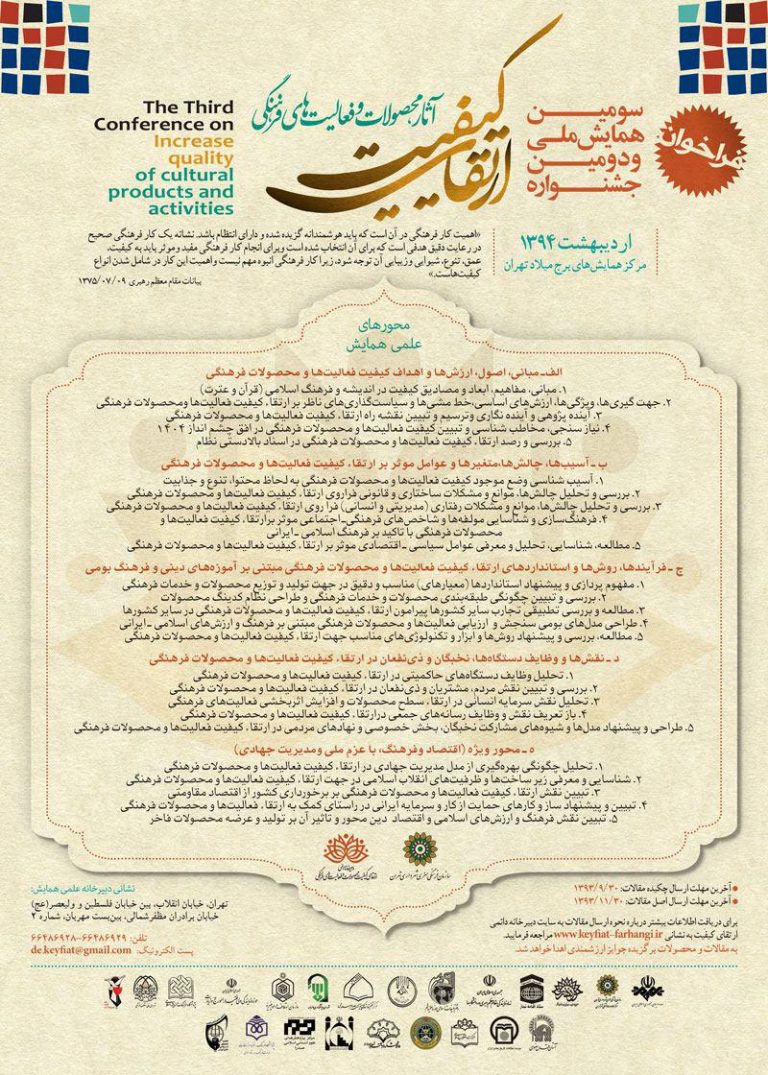 فراخوان
سومین
همایش ملی
و دومین
جشنواره
ارتقای کیفیت
آثار، محصولات و فعالیت‌های فرهنگی
The Third
Conference on
Increase
quality
of cultural
products and
activities
اردیبهشت ۱۳۹۴
مرکز همایش‌های برج میلاد تهران
«اهمیت کار فرهنگی در آن است که باید هوشمندانه گزیده شده و دارای انتظام باشد. نشانه یک کار فرهنگی صحیح
در رعایت دقیق هدفی است که برای آن انتخاب شده است و برای انجام کار فرهنگی مفید و موثر باید به کیفیت،
عمق، تنوع، شیوایی و زیبایی آن توجه شود، زیرا کار فرهنگی انبوه مهم نیست و اهمیت این کار در شامل شدن انواع
کیفیت‌هاست.»
بیانات مقام معظم رهبری ۱۳۷۵/۰۷/۰۹
محورهای
علمی همایش
الف ـ مبانی، اصول، ارزش‌ها و اهداف کیفیت فعالیت‌ها و محصولات فرهنگی
۱. مبانی، مفاهیم، ابعاد و مصادیق کیفیت در اندیشه و فرهنگ اسلامی (قرآن و عترت)
۲. جهت گیری‌ها، ویژگی‌ها، ارزش‌های اساسی، خط مشی‌ها و سیاست‌گذاری‌های ناظر بر ارتقاء کیفیت فعالیت‌ها و محصولات فرهنگی
۳. آینده پژوهی و آینده نگاری و ترسیم و تبیین نقشه راه ارتقاء کیفیت فعالیت‌ها و محصولات فرهنگی
۴. نیاز سنجی، مخاطب شناسی و تبیین کیفیت فعالیت‌ها و محصولات فرهنگی در افق چشم انداز ۱۴۰۴
۵. بررسی و رصد ارتقاء کیفیت فعالیت‌ها و محصولات فرهنگی در اسناد بالادستی نظام
ب ـ آسیب‌ها، چالش‌ها، متغیرها و عوامل موثر بر ارتقاء کیفیت فعالیت‌ها و محصولات فرهنگی
۱. آسیب شناسی وضع موجود کیفیت فعالیت‌ها و محصولات فرهنگی به لحاظ محتوا، تنوع و جذابیت
۲. بررسی و تحلیل چالش‌ها، موانع و مشکلات ساختاری و قانونی فراروی ارتقاء کیفیت فعالیت‌ها و محصولات فرهنگی
۳. بررسی و تحلیل چالش‌ها، موانع و مشکلات رفتاری (مدیریتی و انسانی) فرا روی ارتقاء کیفیت فعالیت‌ها و محصولات فرهنگی
۴. فرهنگ‌سازی و شناسایی مولفه‌ها و شاخص‌های فرهنگی-اجتماعی موثر بر ارتقاء کیفیت فعالیت‌ها و
محصولات فرهنگی با تاکید بر فرهنگ اسلامی ـ ایرانی
۵. مطالعه، شناسایی، تحلیل و معرفی عوامل سیاسی ـ اقتصادی موثر بر ارتقاء کیفیت فعالیت‌ها و محصولات فرهنگی
ج ـ فرآیندها، روش‌ها و استانداردهای ارتقاء کیفیت فعالیت‌ها و محصولات فرهنگی مبتنی بر آموزه‌های دینی و فرهنگ بومی
۱. مفهوم پردازی و پیشنهاد استانداردها (معیارهای) مناسب و دقیق در جهت تولید و توزیع محصولات و خدمات فرهنگی
۲. بررسی و تبیین چگونگی طبقه‌بندی محصولات و خدمات فرهنگی و طراحی نظام کدینگ محصولات
۳. مطالعه و بررسی تطبیقی تجارب سایر کشورها پیرامون ارتقاء کیفیت فعالیت‌ها و محصولات فرهنگی در سایر کشورها
۴. طراحی مدل‌های بومی سنجش و ارزیابی فعالیت‌ها و محصولات فرهنگی مبتنی بر فرهنگ و ارزش‌های اسلامی ـ ایرانی
۵. مطالعه، بررسی و پیشنهاد روش‌ها و ابزار و تکنولوژی‌های مناسب جهت ارتقاء کیفیت فعالیت‌ها و محصولات فرهنگی
د ـ نقش‌ها و وظایف دستگاه‌ها، نخبگان و ذی‌نفعان در ارتقاء کیفیت فعالیت‌ها و محصولات فرهنگی
۱. تحلیل وظایف دستگاه‌های حاکمیتی در ارتقاء کیفیت فعالیت‌ها و محصولات فرهنگی
۲. بررسی و تبیین نقش مردم، مشتریان و ذی‌نفعان در ارتقاء کیفیت فعالیت‌ها و محصولات فرهنگی
۳. تحلیل نقش سرمایه انسانی در ارتقاء سطح محصولات و افزایش اثربخشی فعالیت‌های فرهنگی
۴. باز تعریف نقش و وظایف رسانه‌های جمعی در ارتقاء کیفیت فعالیت‌ها و محصولات فرهنگی
۵. طراحی و پیشنهاد مدل‌ها و شیوه‌های مشارکت نخبگان، بخش خصوصی و نهادهای مردمی در ارتقاء کیفیت فعالیت‌ها و محصولات فرهنگی
ه ـ محور ویژه (اقتصاد و فرهنگ، با عزم ملی و مدیریت جهادی)
۱. تحلیل چگونگی بهره‌گیری از مدل مدیریت جهادی در ارتقاء کیفیت فعالیت‌ها و محصولات فرهنگی
۲. شناسایی و معرفی زیر ساخت‌ها و ظرفیت‌های انقلاب اسلامی در جهت ارتقاء کیفیت فعالیت‌ها و محصولات فرهنگی
۳. تبیین نقش ارتقاء کیفیت فعالیت‌ها و محصولات فرهنگی بر برخورداری کشور از اقتصاد مقاومتی
۴. تبیین و پیشنهاد ساز و کارهای حمایت از کار و سرمایه ایرانی در راستای کمک به ارتقاء کیفیت فعالیت‌ها و محصولات فرهنگی
۵. تبیین نقش فرهنگ و ارزش‌های اسلامی و اقتصاد دین محور و تاثیر آن بر تولید و عرضه محصولات فاخر
سازمان فرهنگی هنری شهرداری تهران
آخرین مهلت ارسال چکیده مقالات: ۱۳۹۳/۹/۳۰
آخرین مهلت ارسال اصل مقالات: ۱۳۹۳/۱۱/۳۰
برای دریافت اطلاعات بیشتر درباره نحوه ارسال مقالات به سایت دبیرخانه دائمی
ارتقای کیفیت به نشانی www.keyfiat-farhangi.ir مراجعه فرمایید.
به مقالات و محصولات برگزیده جوایز ارزشمندی اهدا خواهد شد.
نشانی دبیرخانه علمی همایش:
تهران، خیابان انقلاب، بین خیابان فلسطین و ولیعصر(عج)
خیابان برادران مظفر شمالی، بن‌بست مهربان، شماره ۲
تلفن: ۶۶۴۸۶۹۲۹-۶۶۴۸۶۹۲۸
پست الکترونیک: de.keyfiat@gmail.com